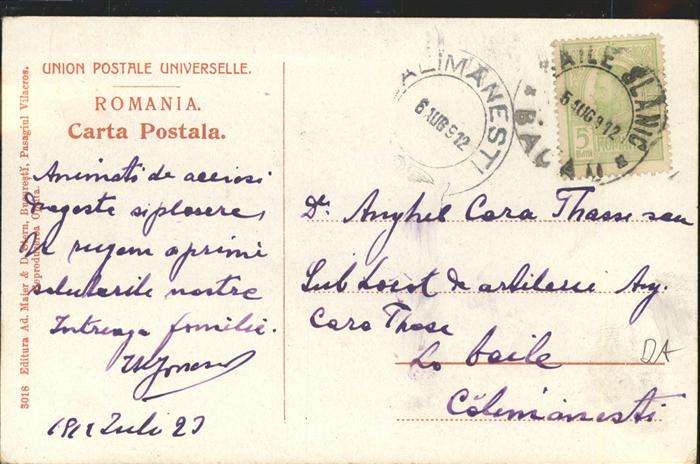 UNION POSTALE UNIVERSELLE.
ROMANIA.
Carta Postala.
Animati de aceiasi
dragoste si placere,
Va rugam a primi
salutarile noastre
Intreaga familie.
1912 Iulie 23
3018 Editura Ad. Maier & D. Stern, București, Pasagiul Vilacros.
Reproducerea Oprita.
CALIMANESTI
6 AUG 912
BAILE SLANIC
5 AUG 912
BACAU
5
BANI
ROMANIA
Dr. Anghel Cara Thasse sau
Sub Locot de artilerie Ang.
Cara Thase
La baile
Călimănesti
DA